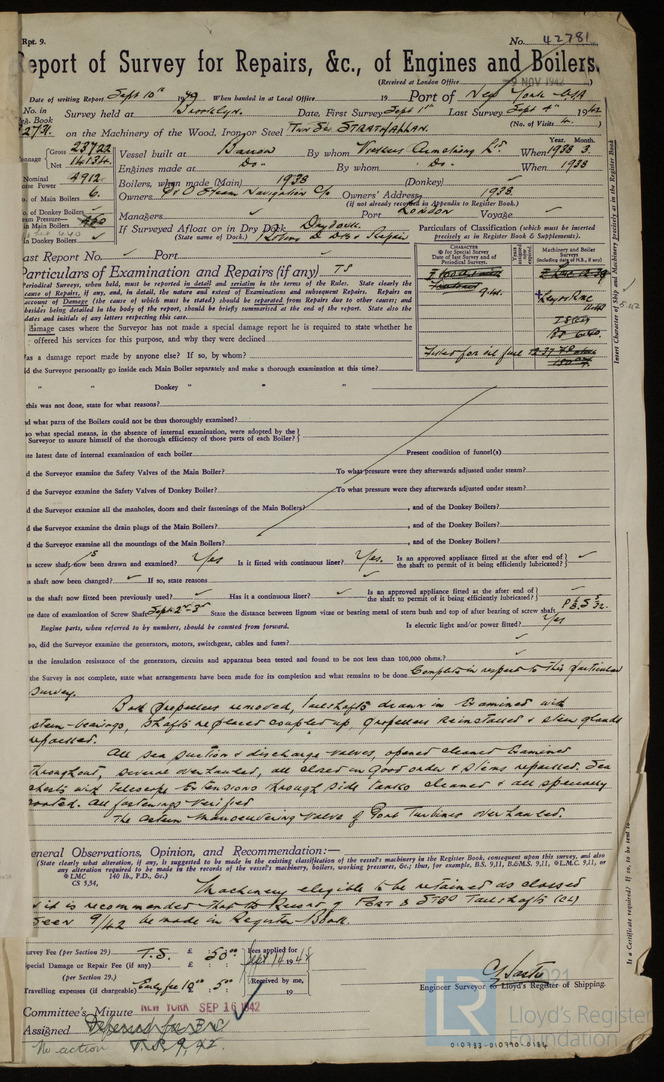 Rpt. 9.
No. 42781
Report of Survey for Repairs, &c., of Engines and Boilers.
(Received at London Office 9 NOV 1942)
Date of writing Report Sept 10th 19 When handed in at Local Office 19 Port of New York USA
No. in Reg. Book Survey held at Brooklyn. Date, First Survey Sept 1st Last Survey Sept 4th 1942
on the Machinery of the Wood, Iron or Steel Tw Sc STRATHALLAN. (No. of Visits 4.)
Gross 23722
Net 14134
Vessel built at Barrow By whom Vickers Armstrong Ld. When 1938 3
Year. Month.
Engines made at Do By whom Do. When 1938
Nominal Horse Power 4912
Boilers, when made (Main) 1938 (Donkey) ✓
No. of Main Boilers 6.
Owners P & O Steam Navigation Co Owners' Address 1938.
(if not already recorded in Appendix to Register Book.)
No. of Donkey Boilers ✓
Managers ✓ Port London Voyage ✓
If Surveyed Afloat or in Dry Dock Drydock.
(State name of Dock.) Robins D Dk & Repair
in Donkey Boilers ✓
Particulars of Classification (which must be inserted precisely as in Register Book & Supplements).
CHARACTER
for Special Survey
Date of last Survey and of Periodical Surveys.
Machinery and Boiler Surveys
(including date of N.B., if any)
Last Report No. ✓ Port
Particulars of Examination and Repairs (if any) TS
Periodical Surveys, when held, must be reported in detail and seriatim in the terms of the Rules. State clearly the
cause of Repairs, if any, and, in detail, the nature and extent of Examinations and subsequent Repairs. Repairs on
account of Damage (the cause of which must be stated) should be separated from Repairs due to other causes; and
besides being detailed in the body of the report, should be briefly summarised at the end of the report. State also the
dates and initials of any letters respecting this case.
9.41.
TS
Fitted for oil fuel
Insert Character of Ship and Machinery precisely as in the Register Book
damage cases where the Surveyor has not made a special damage report he is required to state whether he
offered his services for this purpose, and why they were declined
Was a damage report made by anyone else? If so, by whom?
Did the Surveyor personally go inside each Main Boiler separately and make a thorough examination at this time?
" " Donkey " " "
If this was not done, state for what reasons?
And what parts of the Boilers could not be thus thoroughly examined?
Also what special means, in the absence of internal examination, were adopted by the
Surveyor to assure himself of the thorough efficiency of those parts of each Boiler?
State latest date of internal examination of each boiler Present condition of funnel(s)
Did the Surveyor examine the Safety Valves of the Main Boiler? To what pressure were they afterwards adjusted under steam?
Did the Surveyor examine the Safety Valves of Donkey Boiler? To what pressure were they afterwards adjusted under steam?
Did the Surveyor examine all the manholes, doors and their fastenings of the Main Boilers? , and of the Donkey Boilers?
Did the Surveyor examine the drain plugs of the Main Boilers? , and of the Donkey Boilers?
Did the Surveyor examine all the mountings of the Main Boilers? , and of the Donkey Boilers?
Has screw shaft now been drawn and examined? Yes Is it fitted with continuous liner? Yes. Is an approved appliance fitted at the after end of the shaft to permit of it being efficiently lubricated? ✓
Has shaft now been changed? ✓ If so, state reasons ✓
Has the shaft now fitted been previously used? ✓ Has it a continuous liner? ✓ Is an approved appliance fitted at the after end of the shaft to permit of it being efficiently lubricated? ✓
State date of examination of Screw Shaft Sept 2nd-3rd State the distance between lignum vitæ or bearing metal of stern bush and top of after bearing of screw shaft
Engine parts, when referred to by numbers, should be counted from forward. Is electric light and/or power fitted? Yes
If so, did the Surveyor examine the generators, motors, switchgear, cables and fuses? ✓
Has the insulation resistance of the generators, circuits and apparatus been tested and found to be not less than 100,000 ohms.? ✓
If the Survey is not complete, state what arrangements have been made for its completion and what remains to be done. Complete in respect to this particular
Survey.
Both propellers removed, tailshafts drawn in Examined with
stern-bearings, Shafts replaced coupled up, propellers reinstalled & stern glands
repacked.
All sea suction & discharge valves, opened cleaned Examined
throughout, several overhauled, all closed in Good order & stems repacked. Sea
chests with Telescope Extensions through side tanks cleaned & all specially
coated. All fastenings verified
The astern manoeuvering Valve of Port Turbines overhauled.
General Observations, Opinion, and Recommendation:—
(State clearly what alteration, if any, is suggested to be made in the existing classification of the vessel's machinery in the Register Book, consequent upon this survey, and also
any alteration required to be made in the records of the vessel's machinery, boilers, working pressures, &c.; thus, for example, B.S. 9,11, B.&M.S. 9,11, L.M.C. 9,11, or
L.M.C. 140 lb., F.D., &c.)
CS 5,34,
Machinery eligible to be retained as classed
& it is recommended that the Record of PORT & STBD Tailshafts (CL)
Seen 9/42 be made in Register Book.
Survey Fee (per Section 29) T.S. £ 50 Fees applied for
Sept 14 1942
Special Damage or Repair Fee (if any) £ : :
(per Section 29.)
Received by me,
19
Travelling expenses (if chargeable) £ 5
Engineer Surveyor to Lloyd's Register of Shipping.
Committee's Minute NEW YORK SEP 16 1942
Assigned
No action T.S. 9,42.
Is a Certificate required? If so, to be sent to
2021
LR
Lloyd's Register
Foundation
010783-010790-0184